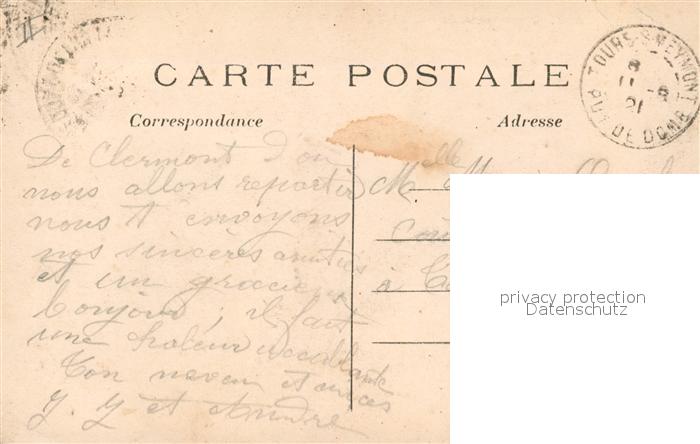 CARTE POSTALE
Correspondance
Adresse
TOURS-S-MEYMONT
8
11 -8
21
PUY DE DOME
De Clermont d'ou
nous allons repartir
nous t'envoyons
nos sincères amitiés
et un gracieux
bonjour ; il fait
une chaleur accablante
Ton neveu et
J. J et Andre
Melle
à
privacy protection
Datenschutz